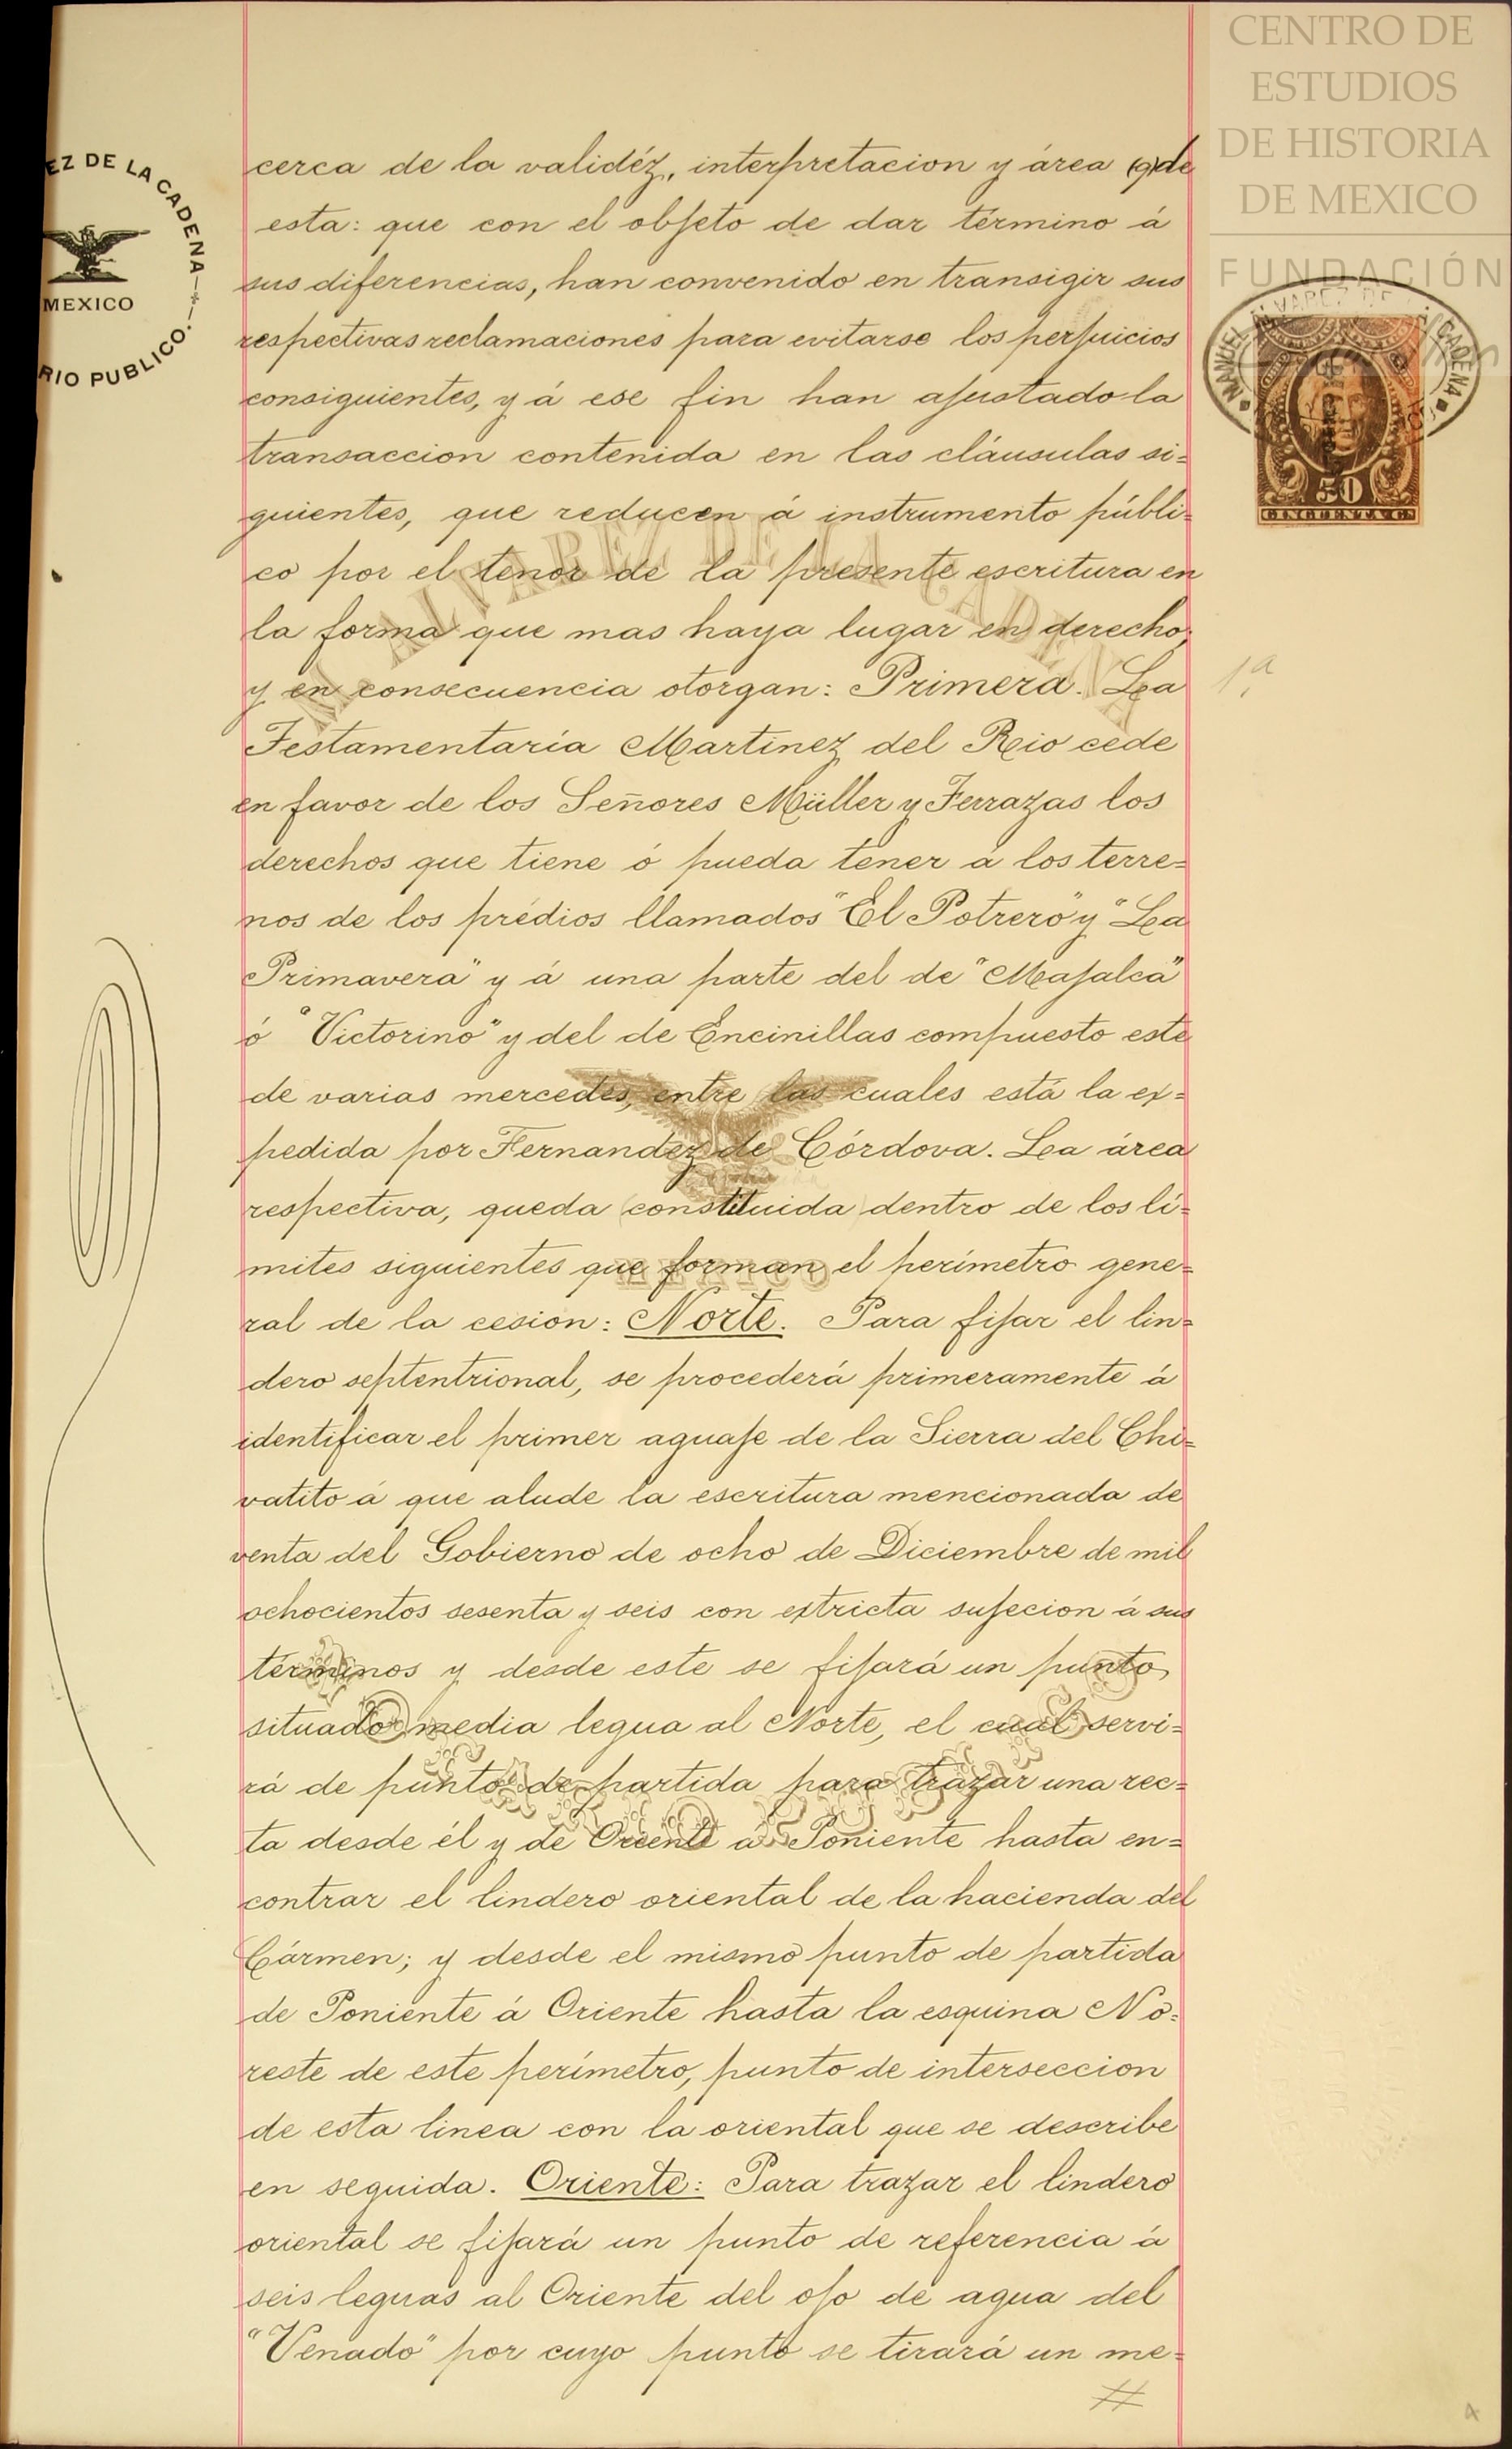 CENTRO DE
ESTUDIOS
DE HISTORIA
DE MEXICO
FUNDACIÓN
EZ DE LA CADENA
MEXICO
RIO PUBLICO.
MANUEL ALVAREZ DE LA CADENA
50
cerca de la validéz, interpretacion y área (9) de
esta: que con el objeto de dar término á
sus diferencias, han convenido en transigir sus
respectivas reclamaciones para evitarse los perjuicios
consiguientes, y á ese fin han ajustado la
transaccion contenida en las cláusulas si=
guientes, que reducen á instrumento públi=
co por el tenor de la presente escritura en
la forma que mas haya lugar en derecho;
y en consecuencia otorgan: Primera. La
1ª
Testamentaría Martinez del Rio cede
en favor de los Señores Müller y Terrazas los
derechos que tiene ó pueda tener á los terre=
nos de los prédios llamados "El Potrero" y "La
Primavera" y á una parte del de "Majalca"
ó "Victorino" y del de Encinillas compuesto este
de varias mercedes, entre las cuales está la ex=
pedida por Fernandez de Córdova. La área
respectiva, queda constituida dentro de los lí=
mites siguientes que forman el perímetro gene=
ral de la cesion: Norte. Para fijar el lin=
dero septentrional, se procederá primeramente á
identificar el primer aguaje de la Sierra del Chi=
vatito á que alude la escritura mencionada de
venta del Gobierno de ocho de Diciembre de mil
ochocientos sesenta y seis con extricta sujecion á sus
términos y desde este se fijará un punto,
situado media legua al Norte, el cual servi=
rá de punto de partida para trazar una rec=
ta desde él y de Oriente á Poniente hasta en=
contrar el lindero oriental de la hacienda del
Cármen; y desde el mismo punto de partida
de Poniente á Oriente hasta la esquina No=
reste de este perímetro, punto de interseccion
de esta linea con la oriental que se describe
en seguida. Oriente: Para trazar el lindero
oriental se fijará un punto de referencia á
seis leguas al Oriente del ojo de agua del
"Venado" por cuyo punto se tirará un me=